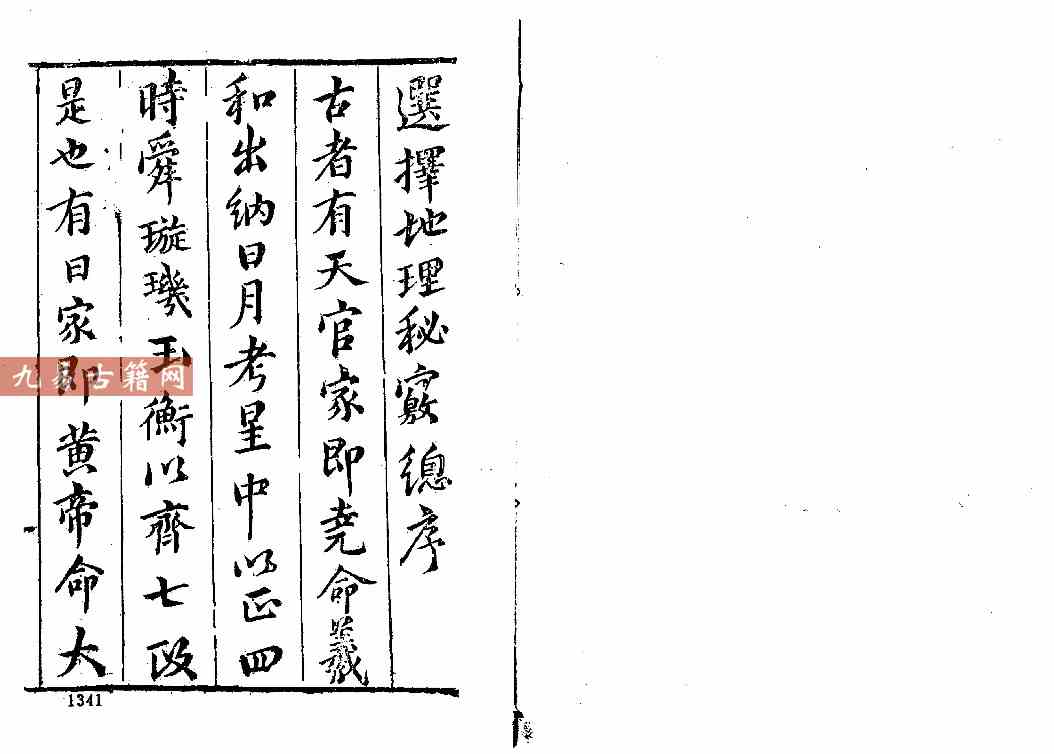 選擇地理秘竅總序
古者有天官家即堯命羲
和出納日月考星中以正四
時舜璇璣玉衡以齊七政
是也有日家即黃帝命太
九易古籍网
1341